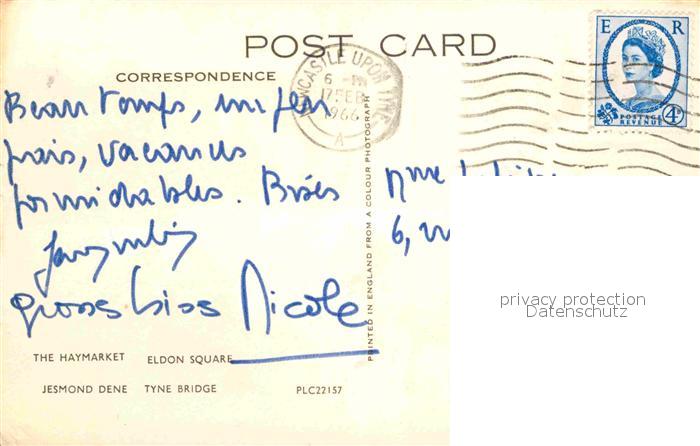 POST CARD
CORRESPONDENCE
NEWCASTLE UPON TYNE
6 - PM
17 FEB
1966
A
E R
POSTAGE
REVENUE
4D
Beau temps, un peu
frais, vacances
formidables. Bises
gross bises Nicole
Mme
6,
PRINTED IN ENGLAND FROM A COLOUR PHOTOGRAPH
THE HAYMARKET ELDON SQUARE
JESMOND DENE TYNE BRIDGE PLC22157
privacy protection
Datenschutz